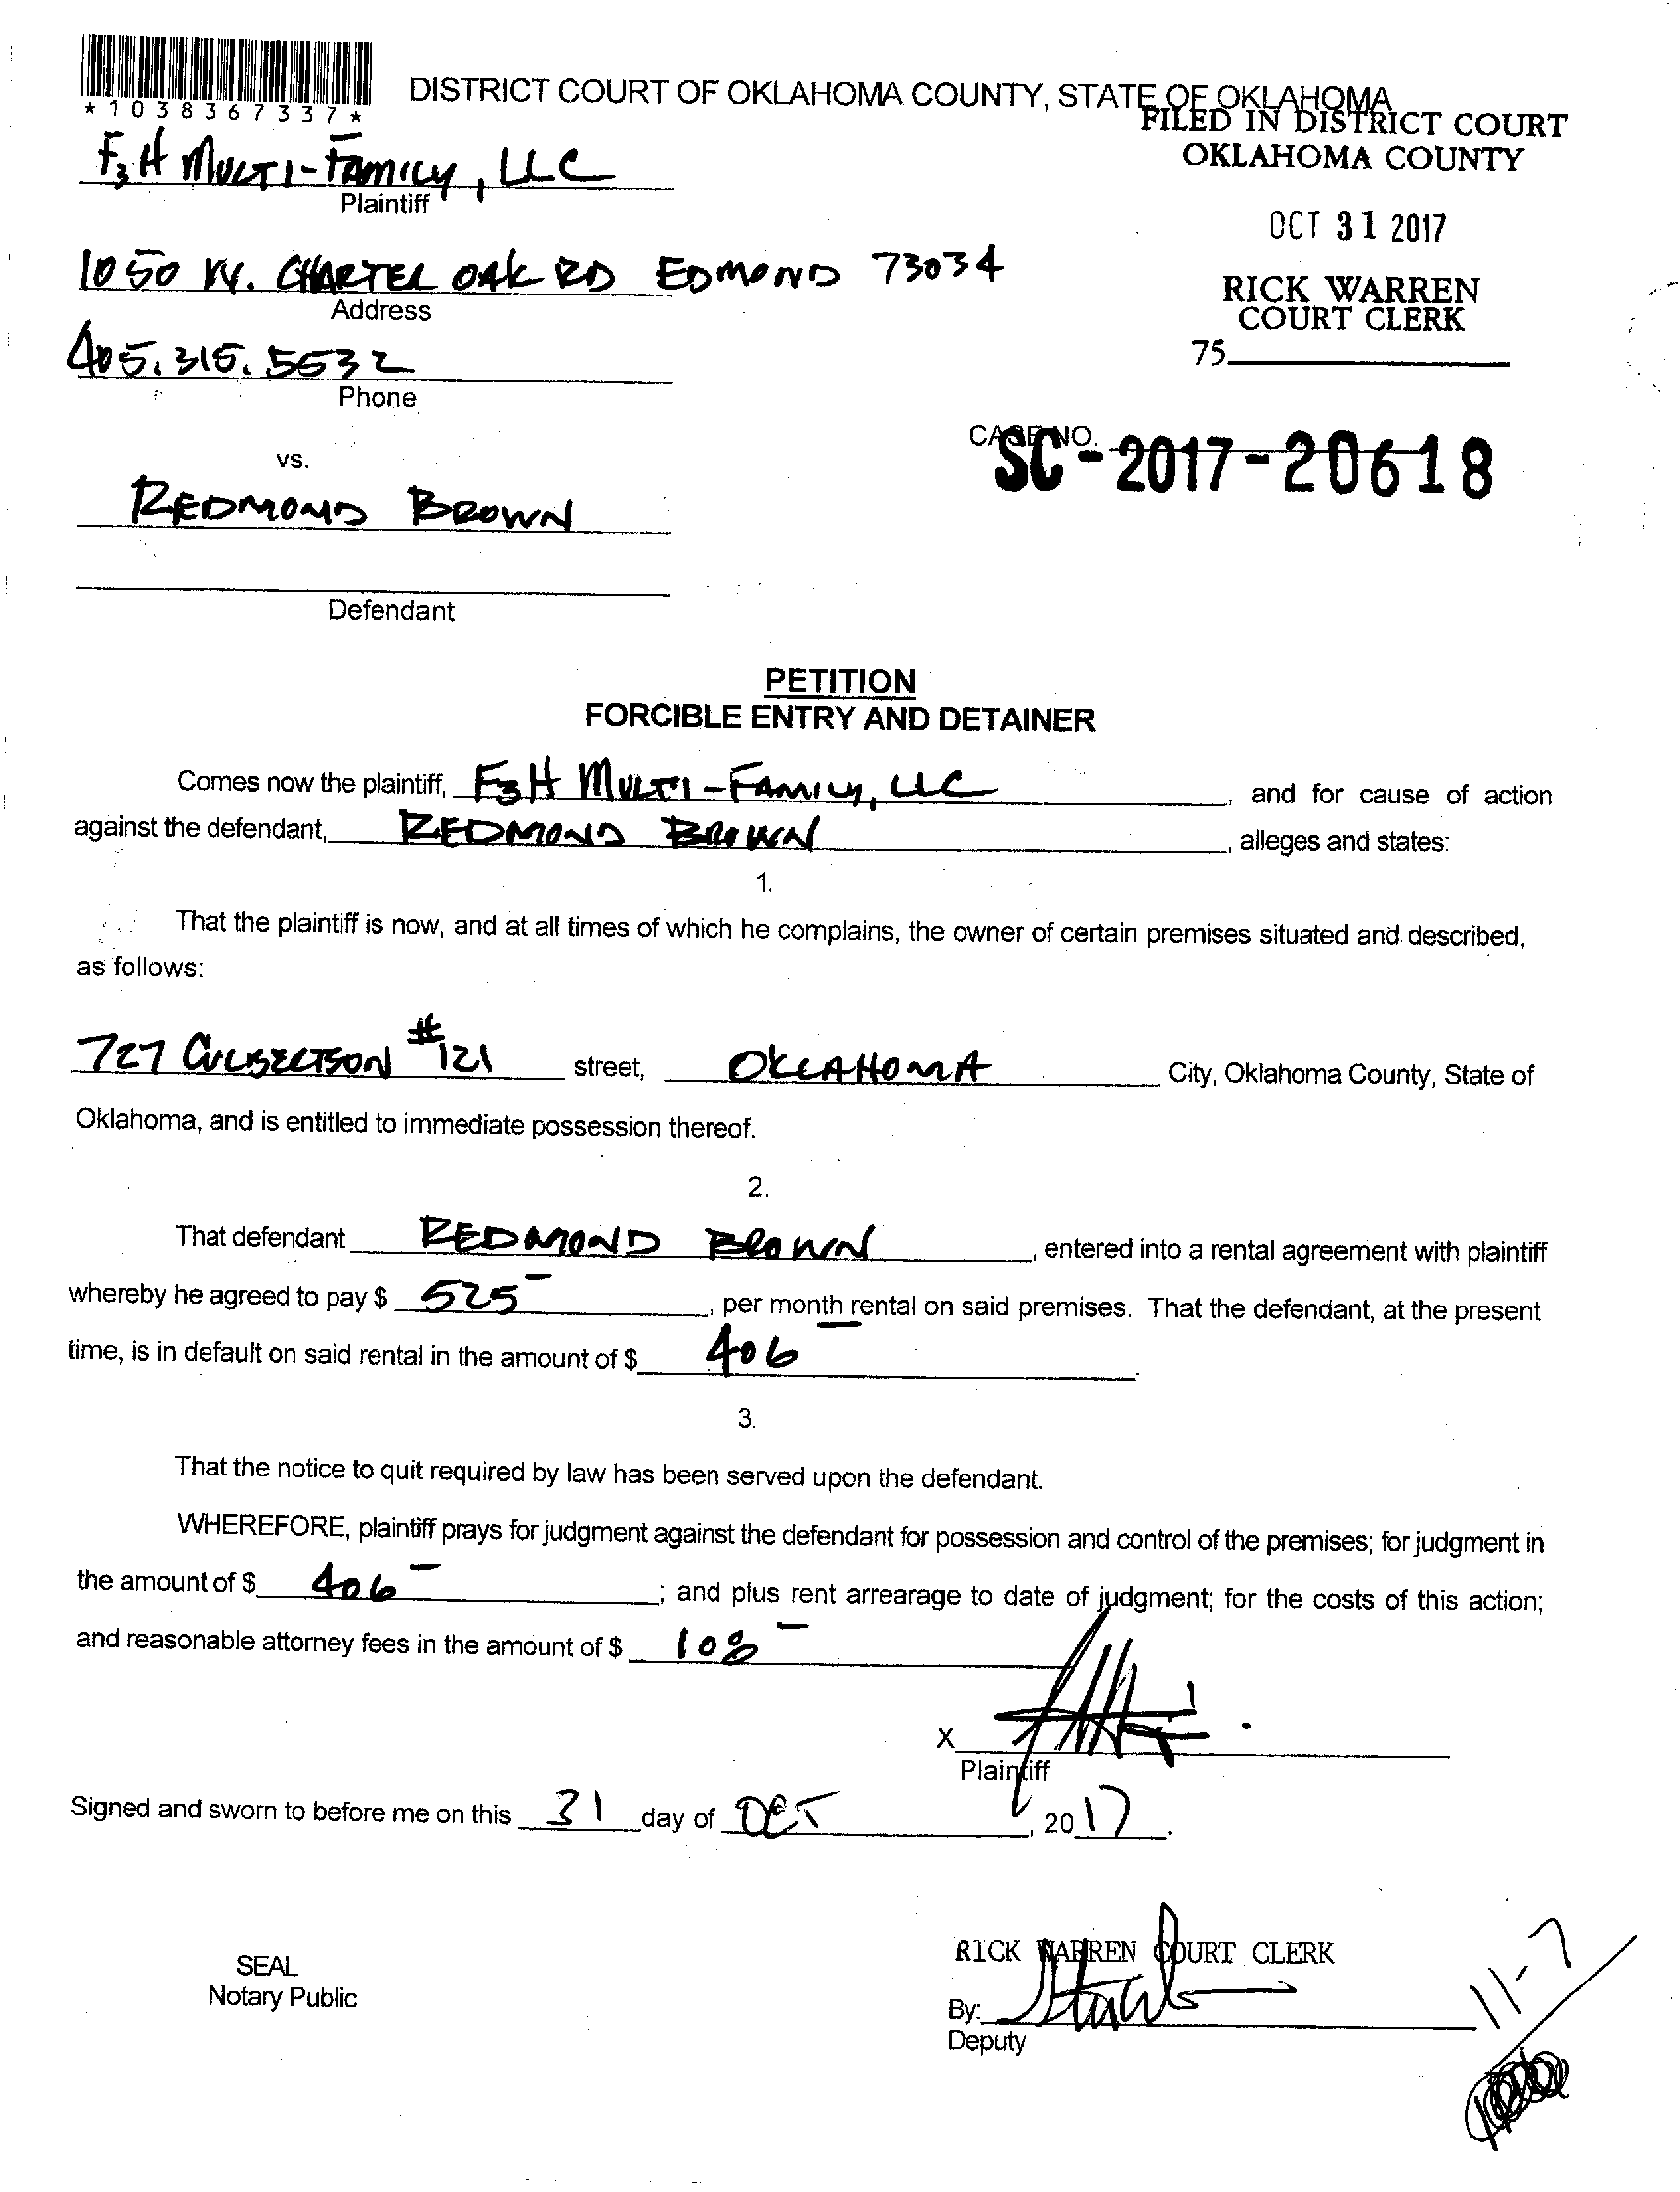 *1038367337*
DISTRICT COURT OF OKLAHOMA COUNTY, STATE OF OKLAHOMA
FILED IN DISTRICT COURT
OKLAHOMA COUNTY
F3H MULTI-FAMILY, LLC
Plaintiff
OCT 31 2017
1050 W. CHARTER OAK RD EDMOND 73034
Address
RICK WARREN
COURT CLERK
405.315.5532
75
Phone
CASE NO. SC-2017-20618
vs.
REDMOND BROWN
Defendant
PETITION
FORCIBLE ENTRY AND DETAINER
Comes now the plaintiff, F3H MULTI-FAMILY, LLC, and for cause of action
against the defendant, REDMOND BROWN, alleges and states:
1.
That the plaintiff is now, and at all times of which he complains, the owner of certain premises situated and described,
as follows:
727 CULBERTSON #121 street, OKLAHOMA City, Oklahoma County, State of
Oklahoma, and is entitled to immediate possession thereof.
2.
That defendant REDMOND BROWN, entered into a rental agreement with plaintiff
whereby he agreed to pay $ 525-, per month rental on said premises. That the defendant, at the present
time, is in default on said rental in the amount of $ 406-.
3.
That the notice to quit required by law has been served upon the defendant.
WHEREFORE, plaintiff prays for judgment against the defendant for possession and control of the premises; for judgment in
the amount of $ 406-; and plus rent arrearage to date of judgment; for the costs of this action;
and reasonable attorney fees in the amount of $ 108-
X
Plaintiff
Signed and sworn to before me on this 31 day of OCT, 2017.
RICK WARREN COURT CLERK
SEAL
Notary Public
By:
Deputy
11-7